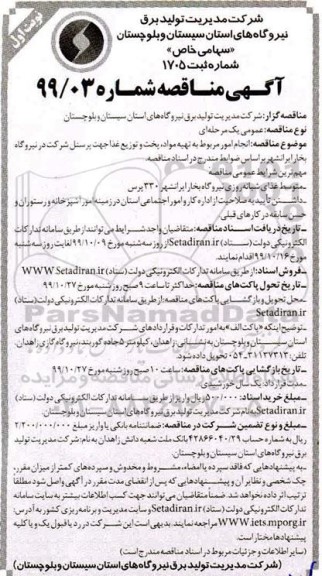 نوبت اول
شرکت مدیریت تولید برق
نیروگاه‌های استان سیستان و بلوچستان
«سهامی خاص»
شماره ثبت ۱۷۰۵
آگهی مناقصه شماره ۹۹/۰۳
مناقصه گزار: شرکت مدیریت تولید برق نیروگاه‌های استان سیستان و بلوچستان
نوع مناقصه: عمومی یک مرحله‌ای
موضوع مناقصه: انجام امور مربوط به تهیه مواد، پخت و توزیع غذا جهت پرسنل شرکت در نیروگاه
بخار ایرانشهر بر اساس ضوابط مندرج در اسناد مناقصه.
مهم‌ترین شرایط عمومی مناقصه
ـ متوسط غذای شبانه روزی نیروگاه بخار ایرانشهر ۳۳۰ پرس
ـ داشتن تأییدیه صلاحیت از اداره کار و امور اجتماعی استان در زمینه امور آشپزخانه و رستوران و
حسن سابقه در کارهای قبلی
ـ تاریخ دریافت اسناد مناقصه: متقاضیان واجد شرایط می‌توانند از طریق سامانه تدارکات
الکترونیکی دولت (ستاد) Setadiran.ir از روز سه شنبه مورخ ۹۹/۱۰/۰۹ لغایت روز سه شنبه
مورخ ۹۹/۱۰/۱۶ اقدام نمایند.
ـ فروش اسناد: از طریق سامانه تدارکات الکترونیکی دولت (ستاد) WWW.Setadiran.ir
ـ تاریخ تحویل پاکت‌های مناقصه: حداکثر تا ساعت ۹ صبح روز شنبه مورخ ۹۹/۱۰/۲۷
ـ محل تحویل و بازگشایی پاکت‌های مناقصه: از طریق سامانه تدارکات الکترونیکی دولت (ستاد)
Setadiran.ir
ـ توضیح اینکه «پاکت الف» به امور تدارکات و قراردادهای شرکت مدیریت تولید برق نیروگاه‌های
استان سیستان و بلوچستان به نشانی زاهدان، کیلومتر ۵ جاده گوربند، نیروگاه گازی زاهدان،
تلفن: ۳۱۱۳۷۳۱۳ـ۰۵۴ تحویل داده شود.
ـ تاریخ بازگشایی پاکت‌های مناقصه: ساعت ۱۰ صبح روز شنبه مورخ ۹۹/۱۰/۲۷
ـ مدت قرارداد: یک سال خورشیدی
ـ مبلغ خرید اسناد: ۵۰۰/۰۰۰ ریال واریز از طریق سامانه تدارکات الکترونیکی دولت (ستاد)
Setadiran.ir به نام شرکت مدیریت تولید برق نیروگاه‌های استان سیستان و بلوچستان
ـ مبلغ و نوع تضمین شرکت در مناقصه: ضمانتنامه بانکی یا واریز مبلغ ۲/۲۰۰/۰۰۰/۰۰۰
ریال به شماره حساب ۴۲۸۶۶۰۴۰/۲۹ بانک ملت شعبه دانش زاهدان به نام: شرکت مدیریت تولید
برق نیروگاه‌های استان سیستان و بلوچستان.
ـ به پیشنهادهایی که فاقد سپرده یا امضاء، مشروط و مخدوش و سپرده‌های کمتر از میزان مقرر،
چک شخصی و نظایر آن و پیشنهادهایی که پس از انقضای مدت مقرر در آگهی واصل شود مطلقا
ترتیب اثر داده نخواهد شد. ضمنا متقاضیان می‌توانند جهت کسب اطلاعات بیشتر به سایت سامانه
تدارکات الکترونیکی دولت (ستاد) Setadiran.ir و سایت مدیریت و برنامه ریزی کشور به آدرس:
WWW.iets.mporg.ir مراجعه نمایند. بدیهی است این شرکت در رد یا قبول یک و یا کلیه
پیشنهادها مختار است.
(سایر اطلاعات و جزئیات مربوط در اسناد مناقصه مندرج است)
(شرکت مدیریت تولید برق نیروگاه‌های استان سیستان و بلوچستان)
ParsNamadData